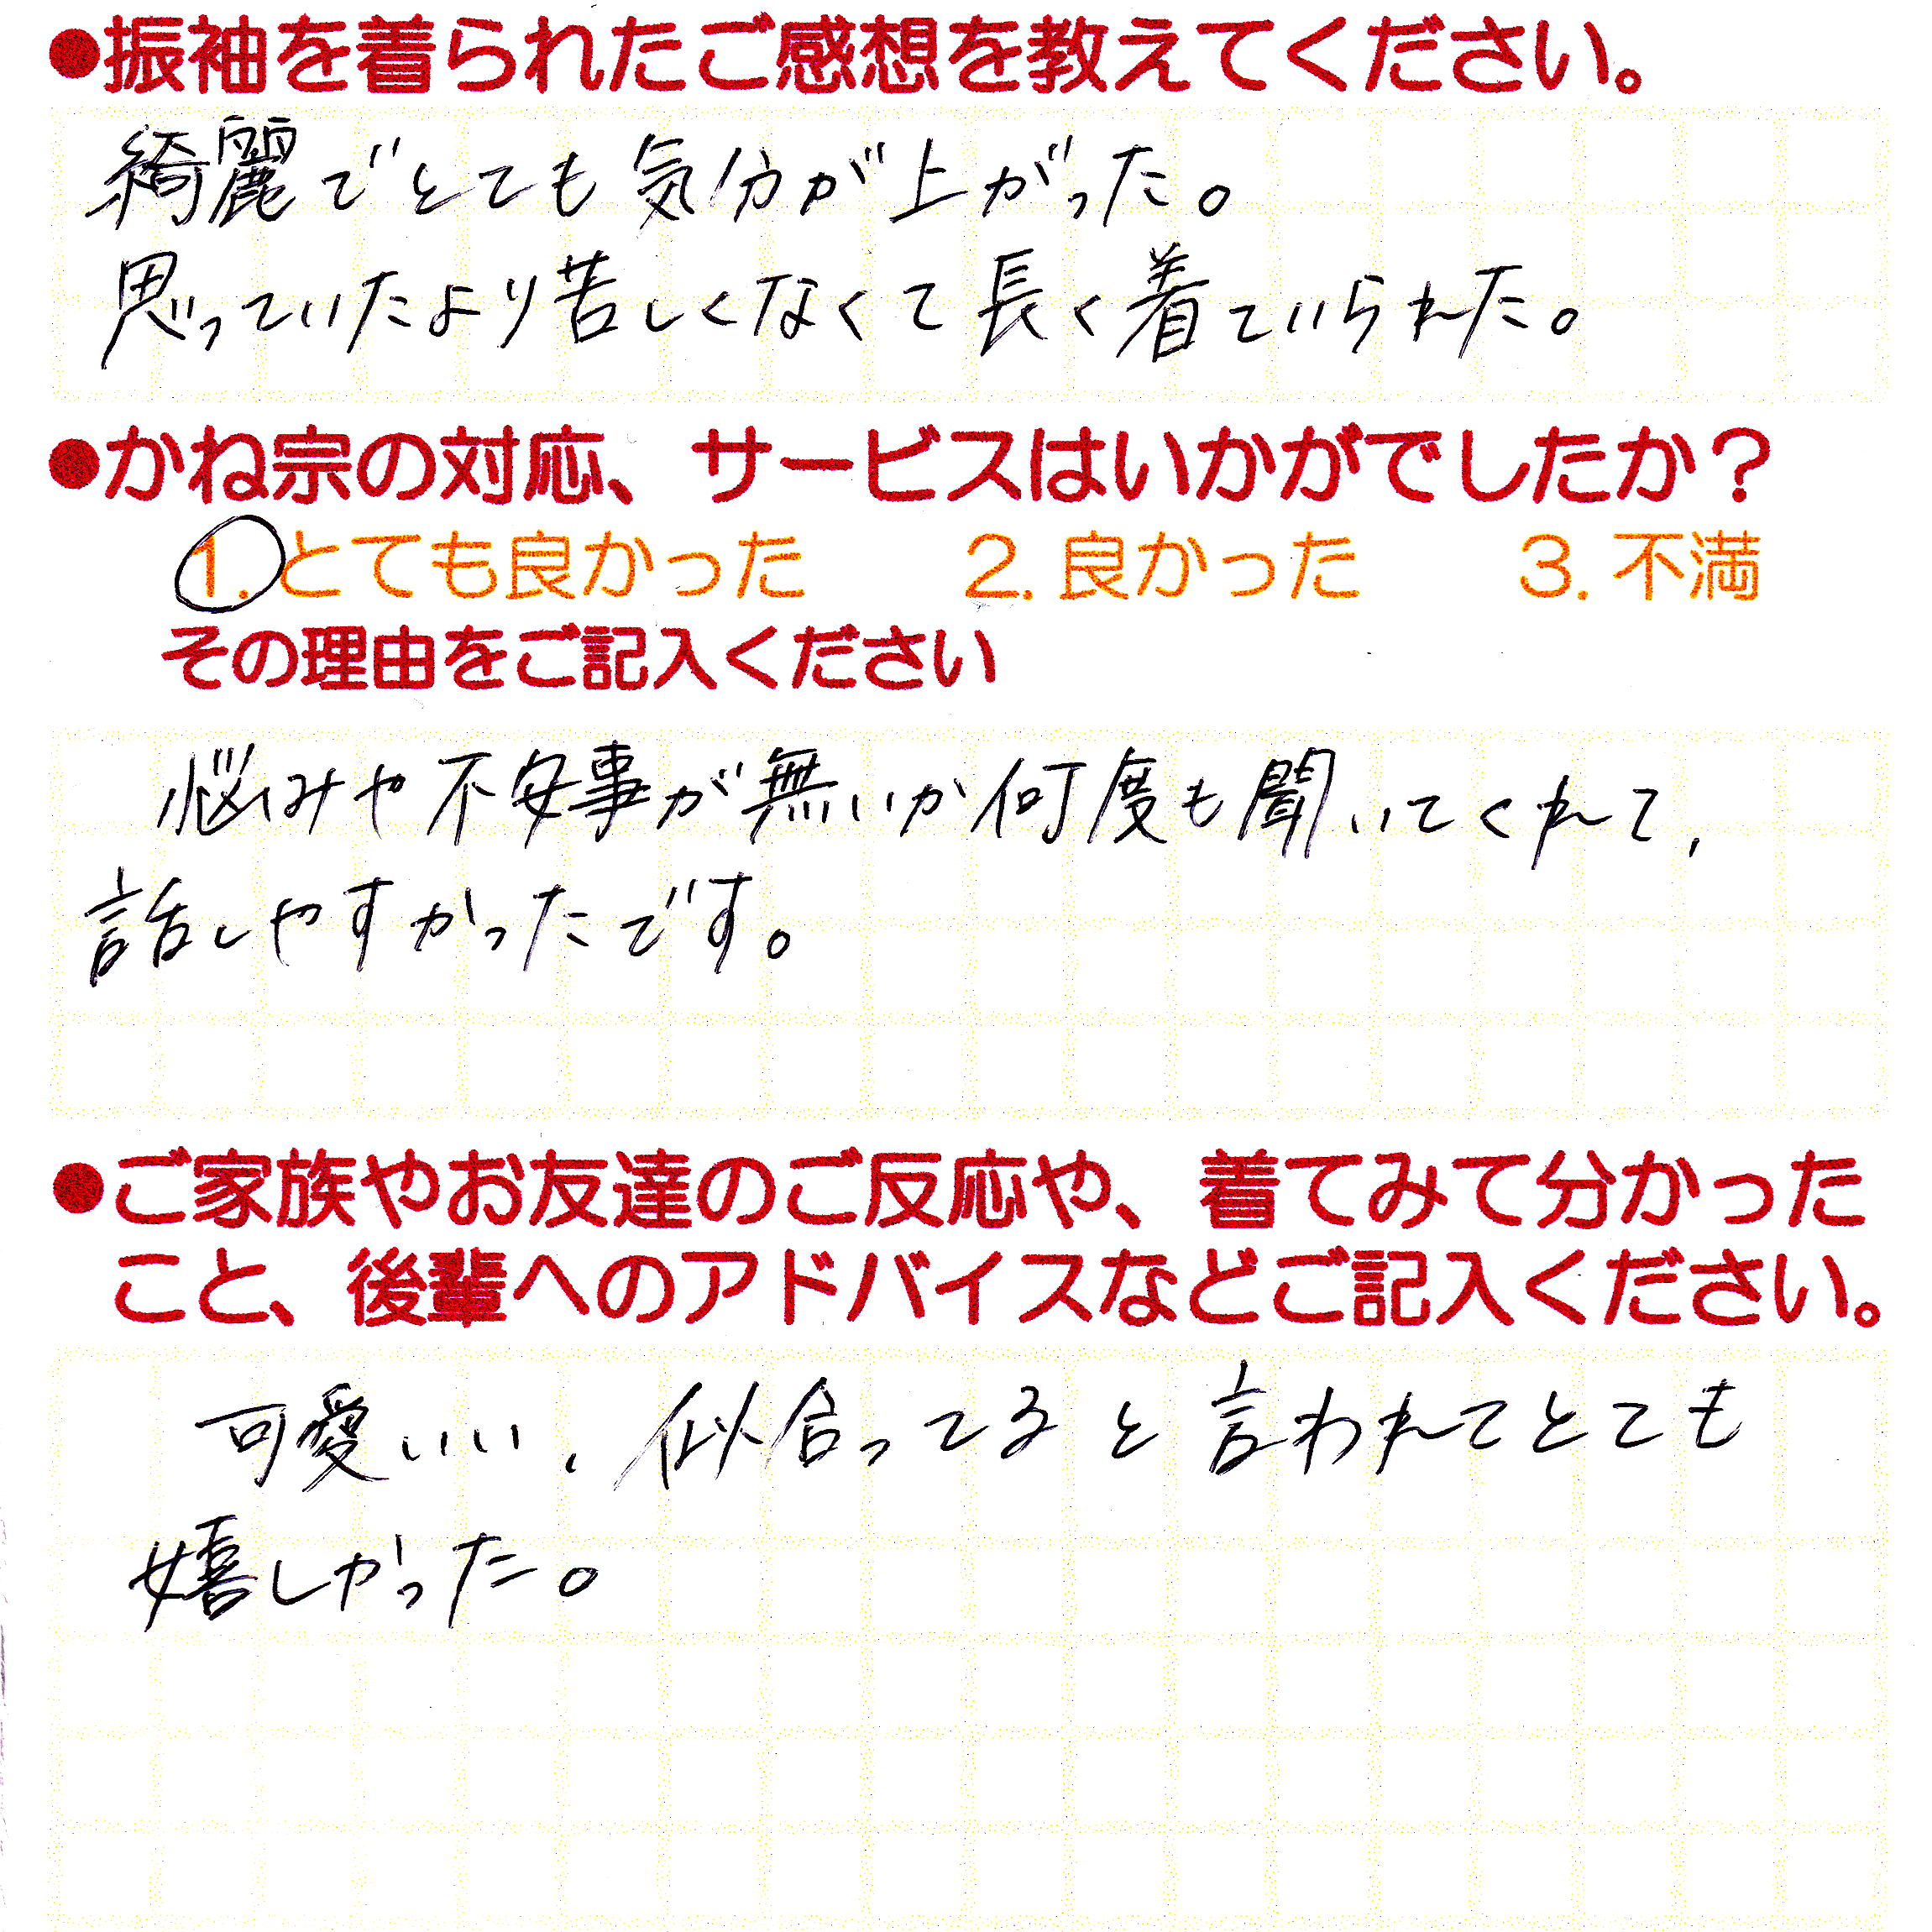 ●振袖を着られたご感想を教えてください。
綺麗でとても気分が上がった。
思っていたより苦しくなくて長く着ていられた。
●かね宗の対応、サービスはいかがでしたか？
1. とても良かった 2. 良かった 3. 不満
その理由をご記入ください
悩みや不安事が無いか何度も聞いてくれて、
話しやすかったです。
●ご家族やお友達のご反応や、着てみて分かった
こと、後輩へのアドバイスなどご記入ください。
可愛いい、似合ってると言われてとても
嬉しかった。